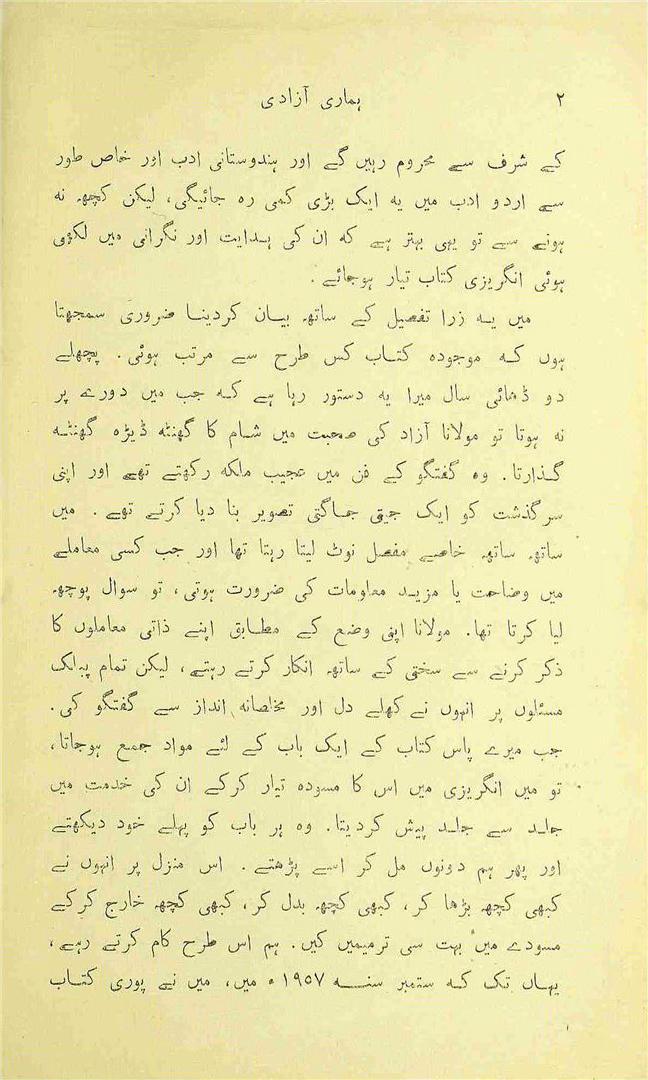 ۲ ہماری آزادی
کے شرف سے محروم رہیں گے اور ہندوستانی ادب اور خاص طور
سے اردو ادب میں یہ ایک بڑی کمی رہ جائیگی، لیکن کچھ نہ
ہونے سے تو یہی بہتر ہے کہ ان کی ہدایت اور نگرانی میں لکھی
ہوئی انگریزی کتاب تیار ہوجائے ۔
میں یہ زرا تفصیل کے ساتھ بیان کردینا ضروری سمجھتا
ہوں کہ موجودہ کتاب کس طرح سے مرتب ہوئی۔ پچھلے
دو ڈھائی سال میرا یہ دستور رہا ہے کہ جب میں دورے پر
نہ ہوتا تو مولانا آزاد کی صحبت میں شام کا گھنٹہ ڈیڑہ گھنٹہ
گذارتا۔ وہ گفتگو کے فن میں عجیب ملکہ رکھتے تھے اور اپنی
سرگذشت کو ایک جیتی جاگتی تصویر بنا دیا کرتے تھے ۔ میں
ساتھ ساتھ خاصے مفصل نوٹ لیتا رہتا تھا اور جب کسی معاملے
میں وضاحت یا مزید معلومات کی ضرورت ہوتی، تو سوال پوچھ
لیا کرتا تھا۔ مولانا اپنی وضع کے مطابق اپنے ذاتی معاملوں کا
ذکر کرنے سے سختی کے ساتھ انکار کرتے رہتے، لیکن تمام پبلک
مسئلوں پر انہوں نے کھلے دل اور مخلصانہ انداز سے گفتگو کی۔
جب میرے پاس کتاب کے ایک باب کے لئے مواد جمع ہوجاتا،
تو میں انگریزی میں اس کا مسودہ تیار کرکے ان کی خدمت میں
جلد سے جلد پیش کردیتا۔ وہ ہر باب کو پہلے خود دیکھتے
اور پھر ہم دونوں مل کر اسے پڑھتے ۔ اس منزل پر انہوں نے
کبھی کچھ بڑھا کر، کبھی کچھ بدل کر، کبھی کچھ خارج کرکے
مسودے میں بہت سی ترمیمیں کیں۔ ہم اس طرح کام کرتے رہے،
یہاں تک کہ ستمبر سنہ ۱۹۵۷ء میں، میں نے پوری کتاب